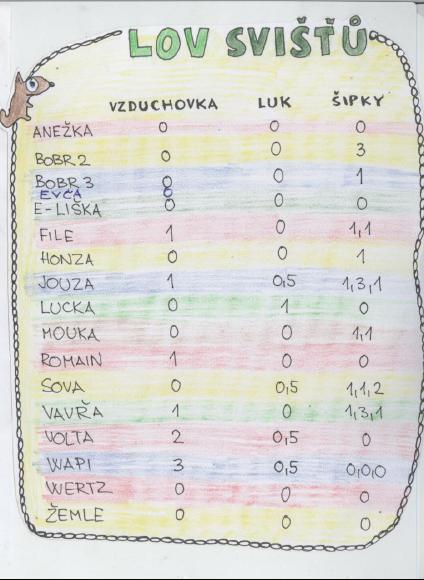 LOV SVIŠŤŮ
VZDUCHOVKA LUK ŠIPKY
ANEŽKA 0 0 0
BOBR 2 0 0 3
BOBR 3 0 0 1
EVČA 0
E-LIŠKA 0 0 0
FILE 1 0 1,1
HONZA 0 0 1
JOUZA 1 0,5 1,3,1
LUCKA 0 1 0
MOUKA 0 0 1,1
ROMAIN 1 0 0
SOVA 0 0,5 1,1,2
VAVŘA 1 0 1,3,1
VOLTA 2 0,5 0
WAPI 3 0,5 0,0,0
WERTZ 0 0 0
ŽEMLE 0 0 0